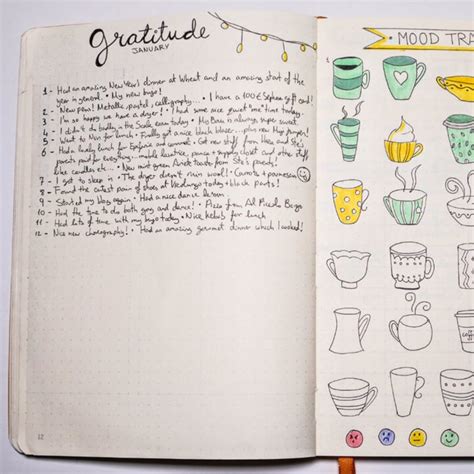 gratitude
JANUARY
1 - Had an amazing New Year's dinner at Wheat and an amazing start of the
year in general • My new huge!
2 - New pens! Metallic, pastel, calligraphy... • I have a 100€ Sephora gift card!
3 - I'm so happy we have a dryer! • Had some nice "me" time today.
4 - I didn't do badly in the exam today • is always super sweet
5 - Went to for lunch • Finally got a nice black blazer... plus new pumps!
6 - Had a lovely lunch for Epifania and • Got new stuff from and Ste's
parents paid for everything... closet and other stuff
like candles etc... • New from Ste's parents!
7 - I got to sleep in • The dryer doesn't ruin wool! • Carrots + parmesan
8 - Found the cutest pair of shoes at today + black pants!
9 - Started my blog again • Had a nice dance lesson
10 - Had the time to do both gym and dance! • Pizza from Al Piccolo Borgo
11 - Had lots of time with my today • Nice kebab for lunch
12 - Nice new choreography! • Had an amazing gourmet dinner which I cooked!
12
MOOD TRA
1
COFFEE